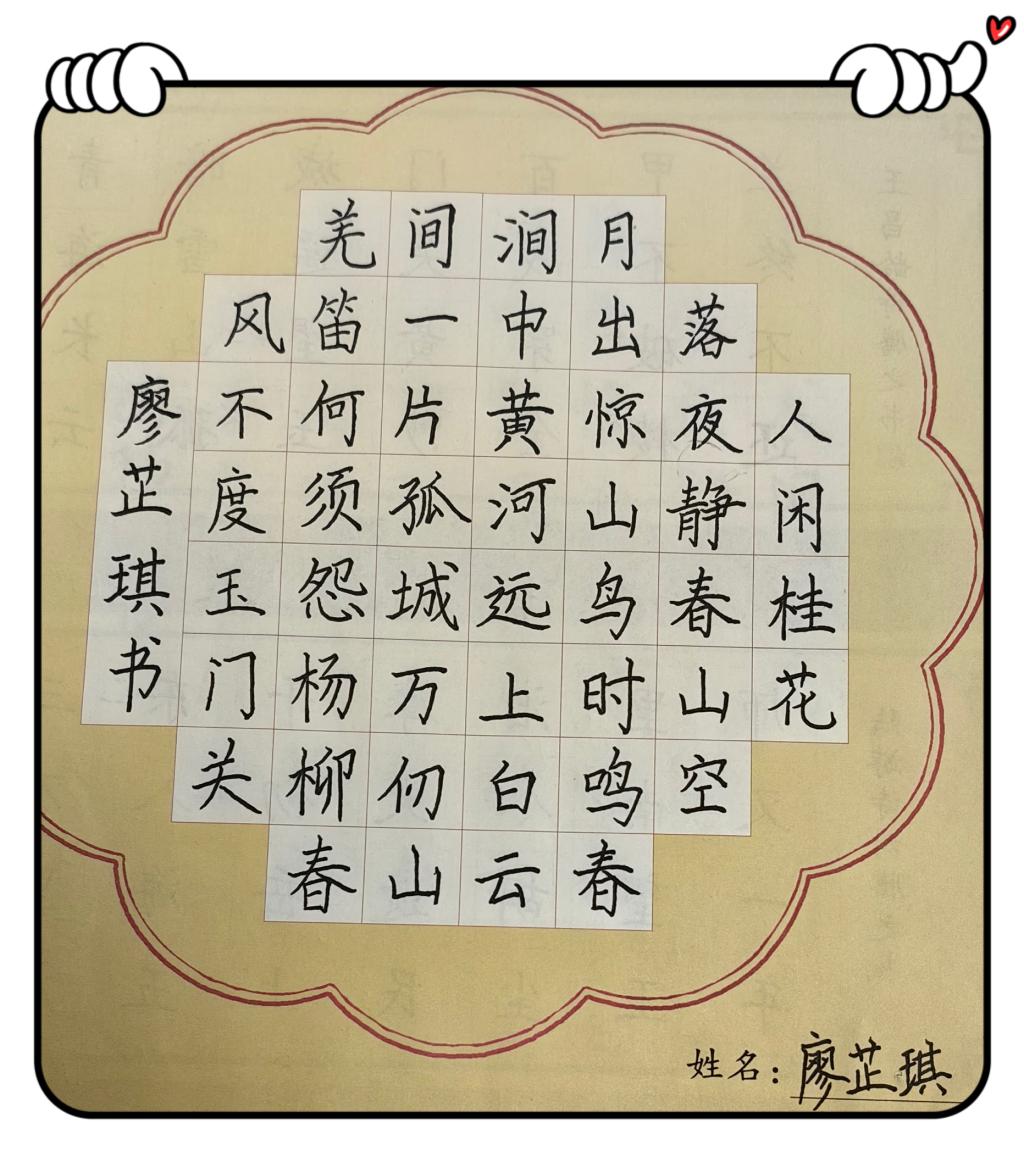 人闲桂花
落夜静春山空
月出惊山鸟时鸣春
涧中黄河远上白云
间一片孤城万仞山
羌笛何须怨杨柳春
风不度玉门关
廖芷琪书
姓名：廖芷琪